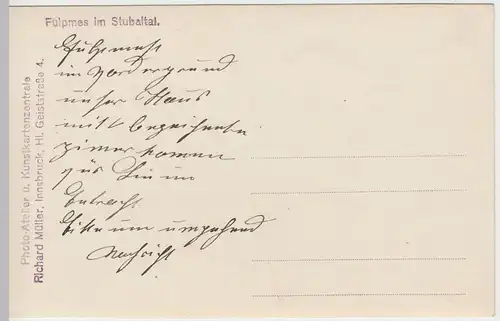 Fulpmes im Stubaital.
Photo-Atelier u. Kunstkartenzentrale
Richard Müller, Innsbruck, Hl. Geiststraße 4.
im Vordergrund
unser Haus
mit bezeichente
zimer komen
in
Betracht
bitte um umgehend
Nachricht